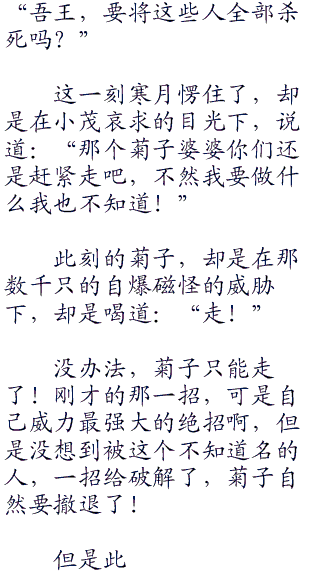 “吾王，要将这些人全部杀
死吗？”
这一刻寒月愣住了，却
是在小茂哀求的目光下，说
道：“那个菊子婆婆你们还
是赶紧走吧，不然我要做什
么我也不知道！”
此刻的菊子，却是在那
数千只的自爆磁怪的威胁
下，却是喝道：“走！”
没办法，菊子只能走
了！刚才的那一招，可是自
己威力最强大的绝招啊，但
是没想到被这个不知道名的
人，一招给破解了，菊子自
然要撤退了！
但是此